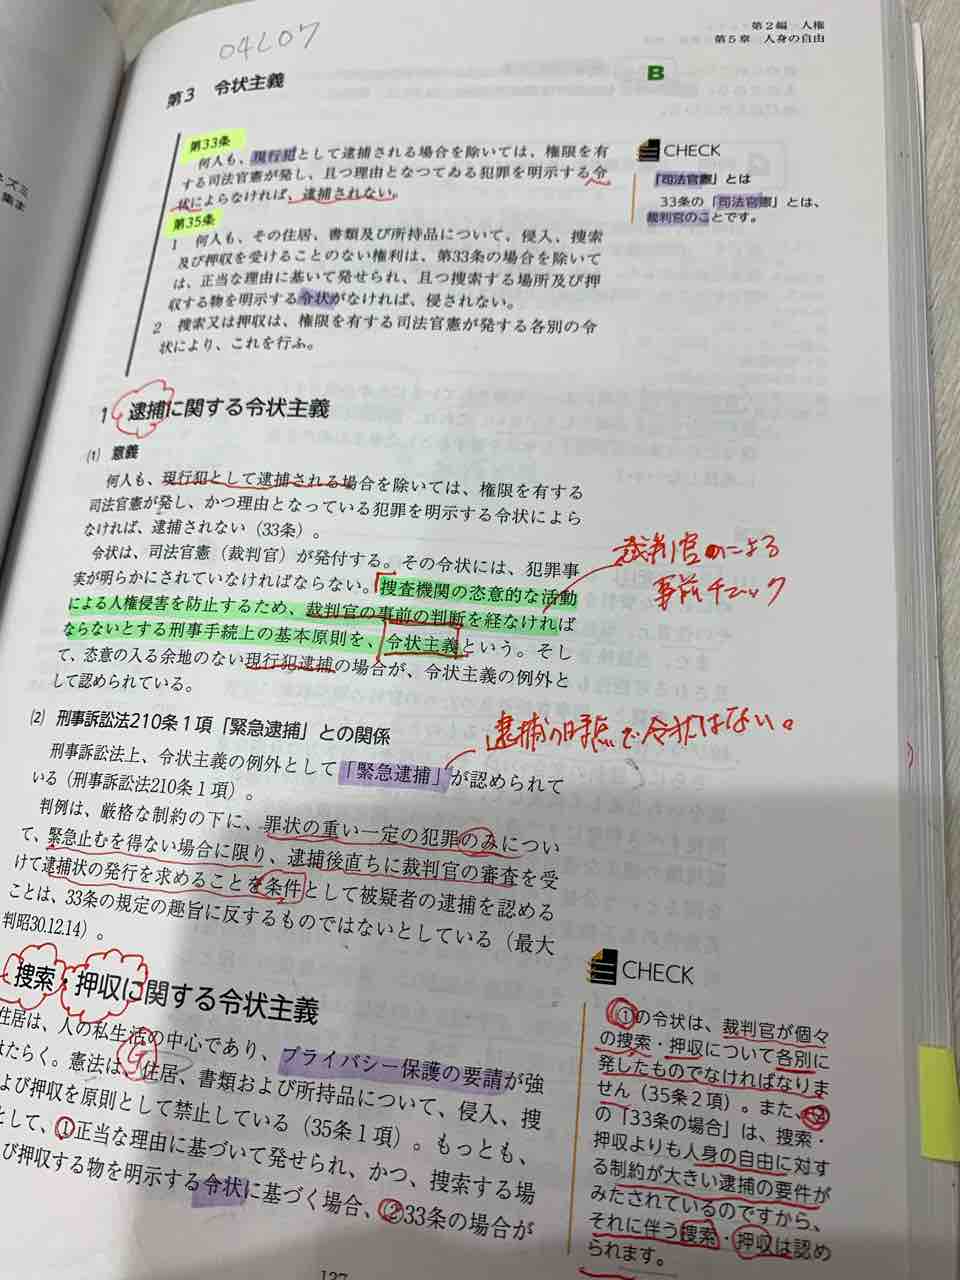 04L07
第2編 人権
第5章 人身の自由
第3 令状主義
B
第33条
何人も、現行犯として逮捕される場合を除いては、権限を有
する司法官憲が発し、且つ理由となつてゐる犯罪を明示する令
状によらなければ、逮捕されない。
第35条
1 何人も、その住居、書類及び所持品について、侵入、捜索
及び押収を受けることのない権利は、第33条の場合を除いて
は、正当な理由に基いて発せられ、且つ捜索する場所及び押
収する物を明示する令状がなければ、侵されない。
2 捜索又は押収は、権限を有する司法官憲が発する各別の令
状により、これを行ふ。
CHECK
「司法官憲」とは
33条の「司法官憲」とは、
裁判官のことです。
1 逮捕に関する令状主義
(1) 意義
何人も、現行犯として逮捕される場合を除いては、権限を有する
司法官憲が発し、かつ理由となっている犯罪を明示する令状によら
なければ、逮捕されない（33条）。
令状は、司法官憲（裁判官）が発付する。その令状には、犯罪事
実が明らかにされていなければならない。捜査機関の恣意的な活動
による人権侵害を防止するため、裁判官の事前の判断を経なければ
ならないとする刑事手続上の基本原則を、令状主義という。そし
て、恣意の入る余地のない現行犯逮捕の場合が、令状主義の例外と
して認められている。
裁判官のによる
事前チェック
(2) 刑事訴訟法210条1項「緊急逮捕」との関係
逮捕の時点で令状はない。
刑事訴訟法上、令状主義の例外として「緊急逮捕」が認められて
いる（刑事訴訟法210条1項）。
判例は、厳格な制約の下に、罪状の重い一定の犯罪のみについ
て、緊急止むを得ない場合に限り、逮捕後直ちに裁判官の審査を受
けて逮捕状の発行を求めることを条件として被疑者の逮捕を認める
ことは、33条の規定の趣旨に反するものではないとしている（最大
判昭30.12.14）。
捜索・押収に関する令状主義
住居は、人の私生活の中心であり、プライバシー保護の要請が強
はたらく。憲法は、住居、書類および所持品について、侵入、捜
よび押収を原則として禁止している（35条1項）。もっとも、
として、①正当な理由に基づいて発せられ、かつ、捜索する場
び押収する物を明示する令状に基づく場合、②33条の場合が
G
CHECK
①の令状は、裁判官が個々
の捜索・押収について各別に
発したものでなければなりま
せん（35条2項）。また、②
の「33条の場合」は、捜索・
押収よりも人身の自由に対す
る制約が大きい逮捕の要件が
みたされているのですから、
それに伴う捜索・押収は認め
られます。
137